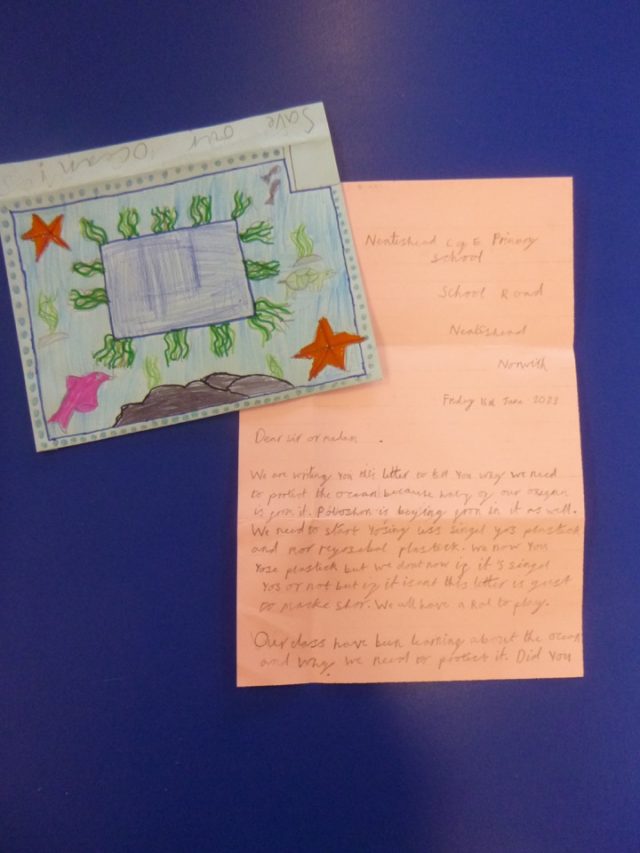 Save our ocean!
Neatishead C of E Primary
School
School Road
Neatishead
Norwich
Friday 16th June 2023
Dear sir or madam
We are writing you this letter to tell you why we need
to protect the ocean because haly of our oxegen
is from it. Poloshon is beying from in it as well.
We need to start yosing less singel yos plastick
and mor reyosebal plastick. We now you
yose plastick but we dont now if it's singel
yos or not but if it isent this letter is gust
to macke shor. We all have a Rol to play.
Our class have been learning about the ocean
and why we need to protect it. Did you